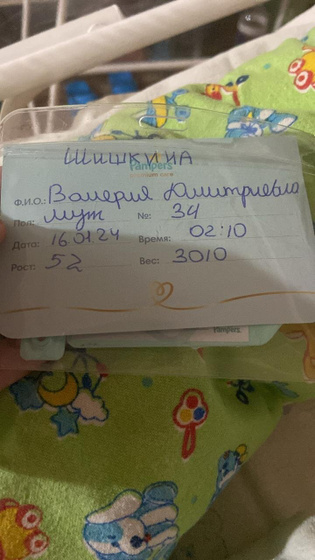 ШИШКИНА
Pampers
Ф.И.О.: Валерия Дмитриевна
Пол: муж №: 34
Дата: 16.01.24 Время: 02:10
Рост: 52 Вес: 3010
Pampers